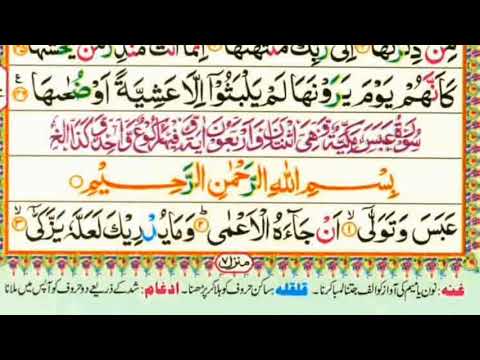 مِنْ ذِكْرٰىهَا اِلٰى رَبِّكَ مُنْتَهٰىهَا اِنَّمَاۤ اَنْتَ مُنْذِرُ مَنْ يَّخْشٰىهَا
كَاَنَّهُمْ يَوْمَ يَرَوْنَهَا لَمْ يَلْبَثُوْۤا اِلَّا عَشِيَّةً اَوْ ضُحٰىهَا
سُوْرَةُ عَبَسَ مَكِّيَّةٌ وَّهِيَ اثْنَتَانِ وَاَرْبَعُوْنَ اٰيَةً وَّفِيْهَا رُكُوْعٌ وَّاحِدٌ
بِسْمِ اللهِ الرَّحْمٰنِ الرَّحِيْمِ
عَبَسَ وَتَوَلّٰىۤ ۙ﴿۱﴾ اَنْ جَآءَهُ الْاَعْمٰى ؕ﴿۲﴾ وَمَا يُدْرِيْكَ لَعَلَّهٗ يَزَّكّٰىۤ ۙ﴿۳﴾
منزل ۷
غنه: نون یا میم کی آواز کو الف جتنا لمبا کرنا۔ قلقله: ساکن حروف کو ہلا کر پڑھنا۔ ادغام: شد کے ذریعے دو حروف کو آپس میں ملانا